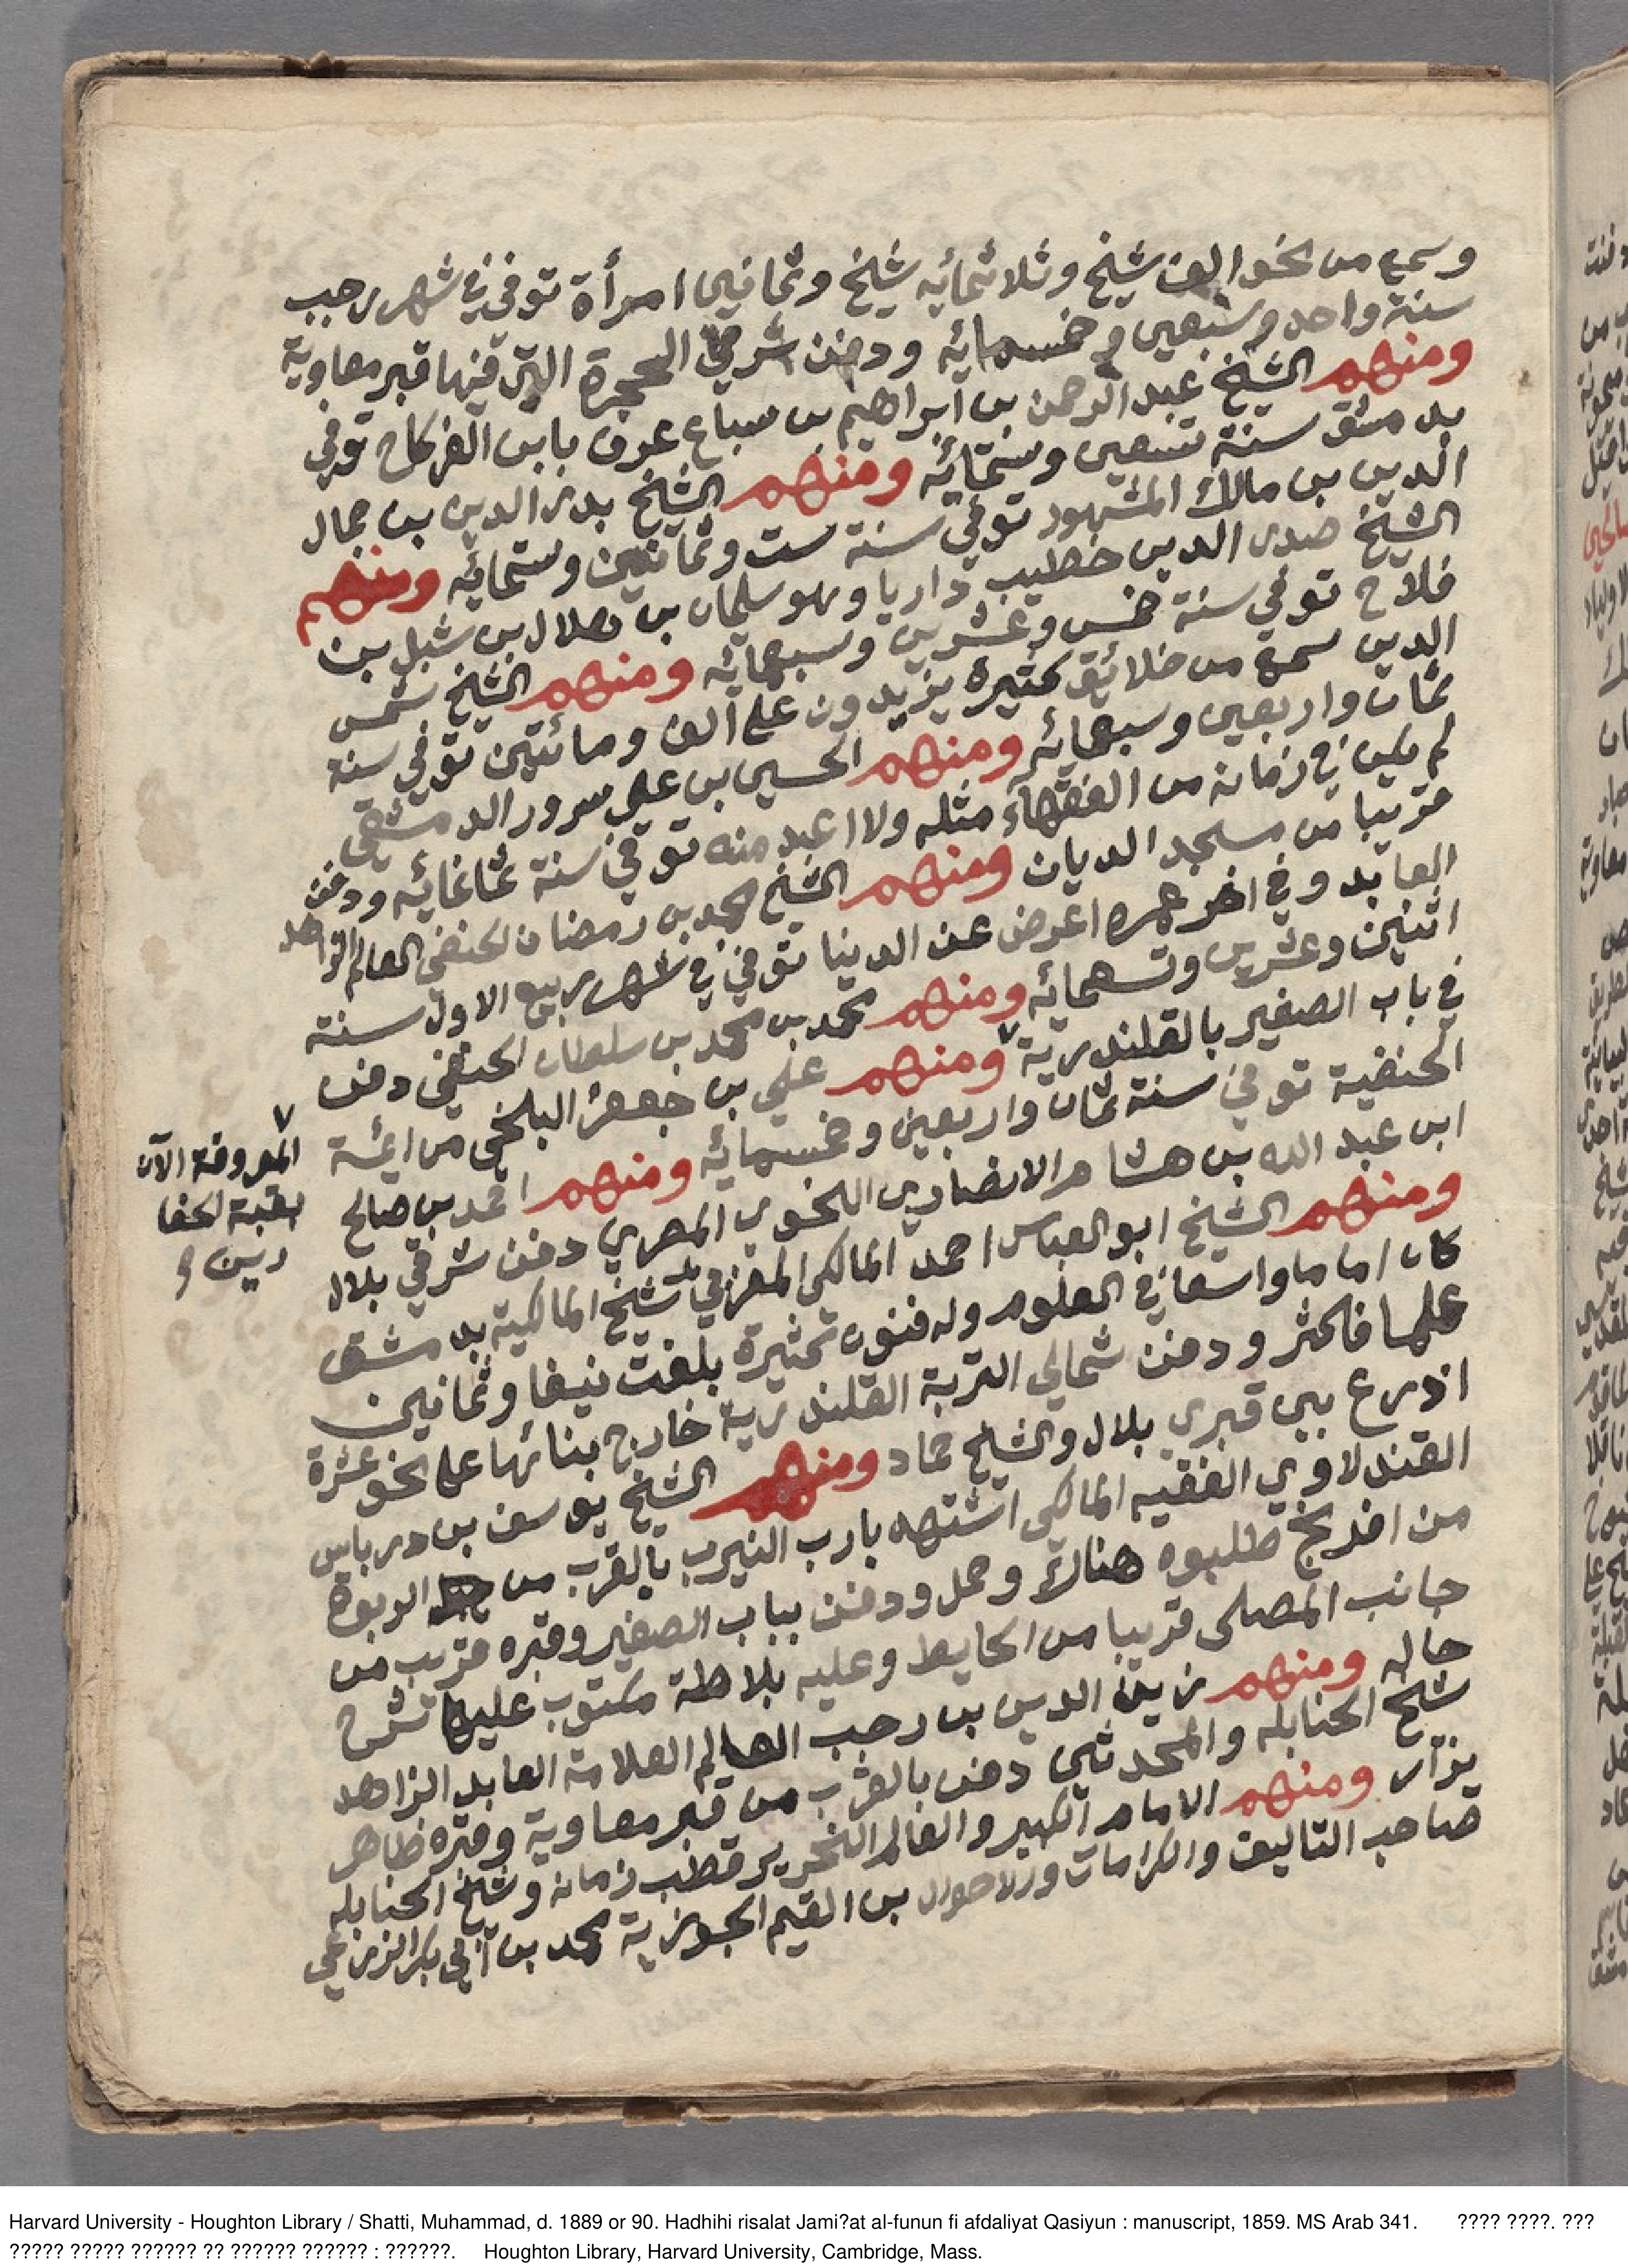 وسمع من نحو الف شيخ وثلاثمائيه شيخ وثمانين امرأة توفي في شهر رجب
سنة واحد وسبعين وخمسمائيه ودفن شرقي الحجرة التي فيها قبر معاوية
ومنهم الشيخ عبد الرحمن بن ابراهيم بن سباع عرف بابن الفركاح توفي
بدمشق سنة تسعين وستمائيه ومنهم الشيخ بدر الدين بن جمال
الدين بن مالك المشهود توفي سنة ست وثمانين وستمائيه ومنهم
الشيخ صدر الدين خطيب داريا وهو سليمان بن هلال بن شبل بن
فلاح توفي سنة خمس وعشرين وسبعمائيه ومنهم الشيخ شمس
الدين سمع من خلائق كثيرة يزيدون على الف ومائتين توفي سنة
ثمان واربعين وسبعمائيه ومنهم الحسين بن علي سرور الدمشقي
لم يكن في زمانه من الفقهاء مثله ولا اعبد منه توفي سنة ثمانمائيه ودفن
قريبا من مسجد الديان ومنهم الشيخ محمد بن رمضان الحنفي العالم الزاهد
العابد وفي اخر عمره اعرض عن الدنيا توفي في شهر ربيع الاول سنة
اثنين وعشرين وتسعمائيه ومنهم محمد بن محمد بن سلطان الحنفي دفن
في باب الصغير بالقلندرية ٧ ومنهم علي بن جعفر البلخي من ائمة
الحنفية توفي سنة ثمان واربعين وخمسمائيه ومنهم احمد بن صالح
ابن عبد الله بن هشام الانصاري النحوي المصري دفن شرقي بلال
ومنهم الشيخ ابو العباس احمد المالكي المغربي شيخ المالكية بدمشق
كان اماما واسعا في العلوم وله فنون كثيرة بلغت نيفا وثمانين
علما فاكثر ودفن شمالي التربة القلندرية خارج بنائها على نحو عشرة
اذرع بين قبري بلال والشيخ حماد ومنهم الشيخ يوسف بن درباس
الفندلاوي الفقيه المالكي اشتهه بارب النيرب بالقرب من الربوة
من افرنج طلبوه هناك وحمل ودفن بباب الصغير وقبره قريب من
جانب المصلى قريبا من الحايط وعليه بلاطة مكتوب عليها شرح
حاله ومنهم زين الدين بن رجب العالم العلامة العابد الزاهد
شيخ الحنابله والمحدثين دفن بالقرب من قبر معاوية وقبره ظاهر
يزار ومنهم الامام الكبير والعالم النحرير قطب زمانه وشيخ الحنابله
صاحب التاليف والكرامات والاحوال بن القيم الجوزية محمد بن أبي بكر الزرعي
٧
المعروفة الآن
بقبة الخفا
رين
Harvard University - Houghton Library / Shatti, Muhammad, d. 1889 or 90. Hadhihi risalat Jami?at al-funun fi afdaliyat Qasiyun : manuscript, 1859. MS Arab 341. ???? ????. ???
????? ????? ?????? ?? ?????? ?????? : ??????. Houghton Library, Harvard University, Cambridge, Mass.